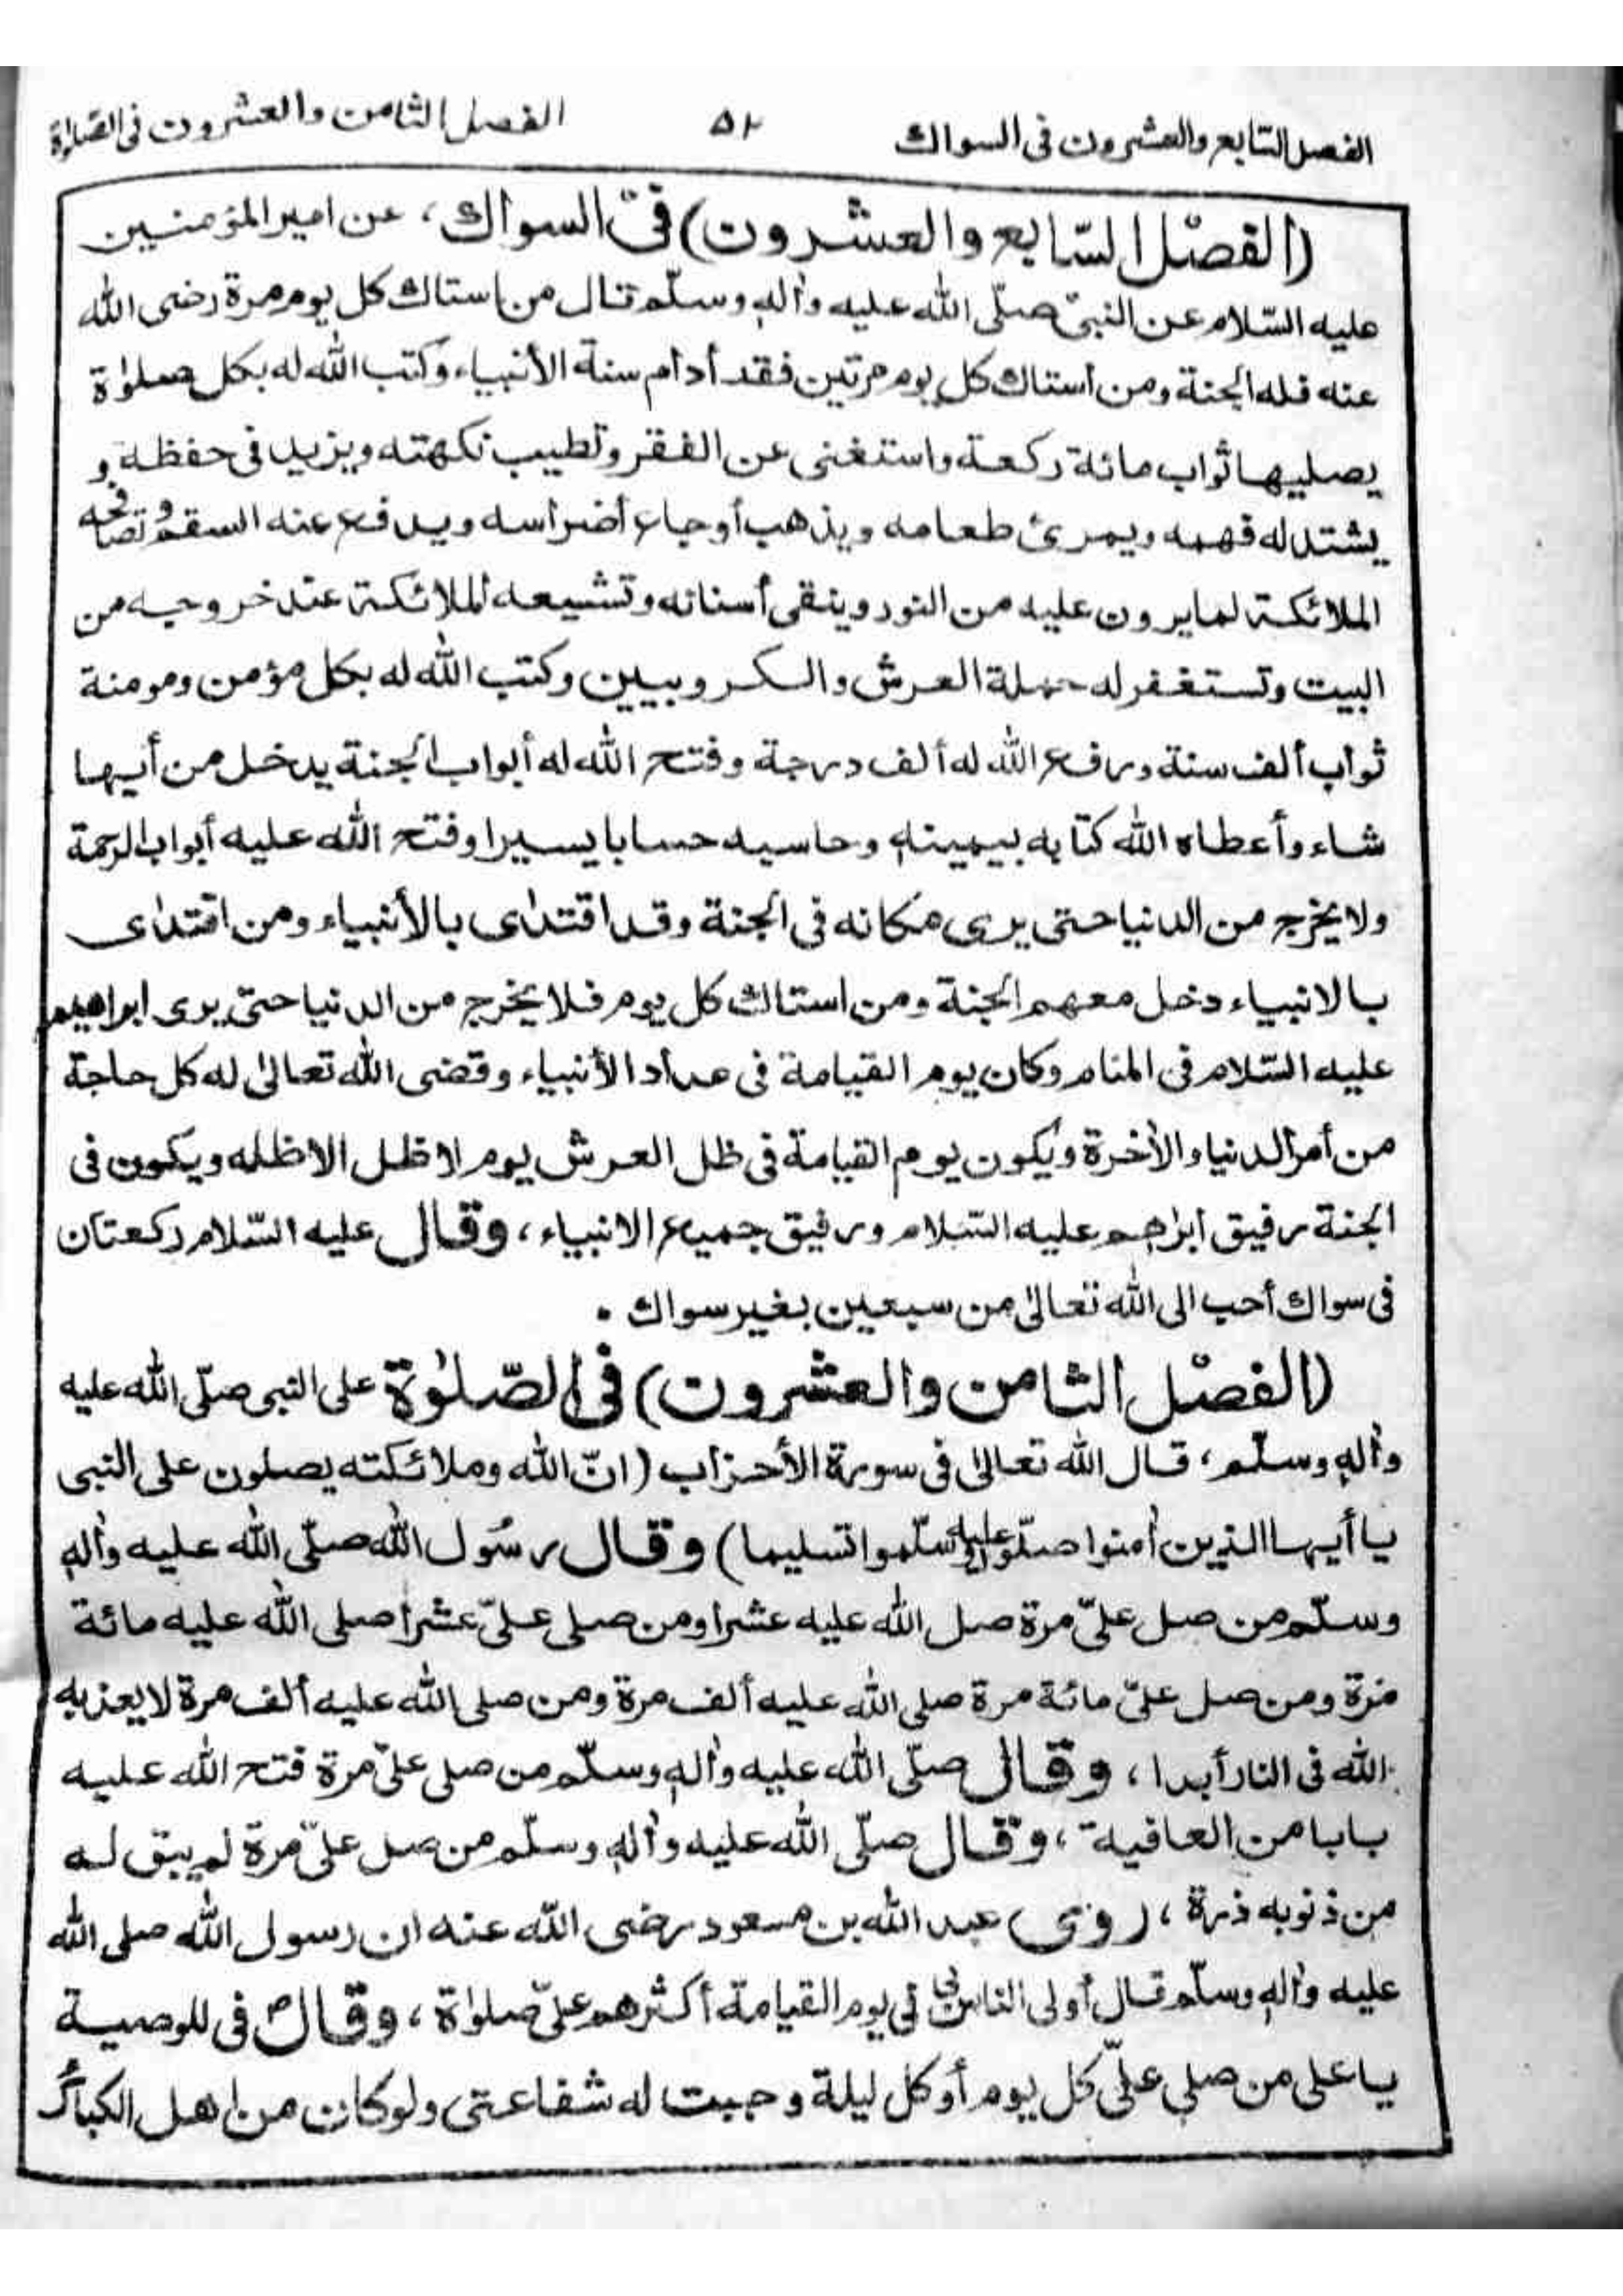 الفصل السابع والعشرون فى السواك ٥٢ الفصل الثامن والعشرون فى الصلاة
(الفصل السّابع والعشرون) فى السواك، عن امير المؤمنين
عليه السّلام عن النبىّ صلّى الله عليه واٰلهٖ وسلّم قال من استاك كل يوم مرة رضى الله
عنه فله الجنة ومن أستاك كل يوم مرتين فقد أدام سنة الأنبياء وكتب الله له بكل صلوٰة
يصليها ثواب مائة ركعة واستغنى عن الفقر وتطيب نكهته ويزيد فى حفظه و
يشتد له فهمه ويمرئ طعامه ويذهب أوجاع أضراسه ويدفع عنه السقم وتصافحه
الملائكة لما يرون عليه من النور وينقى أسنانه وتشيعه الملائكة عند خروجه من
البيت وتستغفر له حملة العرش والكروبيين وكتب الله له بكل مؤمن ومومنة
ثواب ألف سنة ورفع الله له ألف درجة وفتح الله له أبواب الجنة يدخل من أيها
شاء وأعطاه الله كتابه بيمينهٖ وحاسبه حسابا يسيرا وفتح الله عليه أبواب الرحمة
ولا يخرج من الدنيا حتى يرى مكانه فى الجنة وقد اقتدٰى بالأنبياء ومن اقتدٰى
بالانبياء دخل معهم الجنة ومن استاك كل يوم فلا يخرج من الدنيا حتى يرى ابراهيم
عليه السّلام فى المنام وكان يوم القيامة فى عداد الأنبياء وقضى الله تعالىٰ له كل حاجة
من أمر الدنيا والأخرة ويكون يوم القيامة فى ظل العرش يوم لا ظل الا ظله ويكون فى
الجنة رفيق ابراهيم عليه السّلام ورفيق جميع الانبياء، وقال عليه السّلام ركعتان
فى سواك أحب الى الله تعالىٰ من سبعين بغير سواك ۰
(الفصل الثامن والعشرون) فى الصّلوٰة على النبى صلّى الله عليه
واٰلهٖ وسلّم، قال الله تعالىٰ فى سورة الأحزاب (انّ الله وملائكته يصلون على النبى
يا أيها الذين اٰمنوا صلّوا عليه وسلّموا تسليما) وقال رسول الله صلّى الله عليه واٰلهٖ
وسلّم من صل علىّ مرة صل الله عليه عشرا ومن صلى علىّ عشرا صلى الله عليه مائة
مرة ومن صل علىّ مائة مرة صلى الله عليه ألف مرة ومن صلى الله عليه ألف مرة لا يعذبه
الله فى النار أبدا، وقال صلّى الله عليه واٰلهٖ وسلّم من صلى علىّ مرة فتح الله عليه
بابا من العافية، وقال صلّى الله عليه واٰلهٖ وسلّم من صل علىّ مرة لم يبق له
من ذنوبه ذرة، (روى) عبد الله بن مسعود رضى الله عنه ان رسول الله صلى الله
عليه واٰلهٖ وسلّم قال أولى الناس فى يوم القيامة أكثرهم علىّ صلوٰة، وقال ص فى للوصية
يا على من صلى علىّ كل يوم أو كل ليلة وجبت له شفاعتى ولو كان من اهل الكبائر